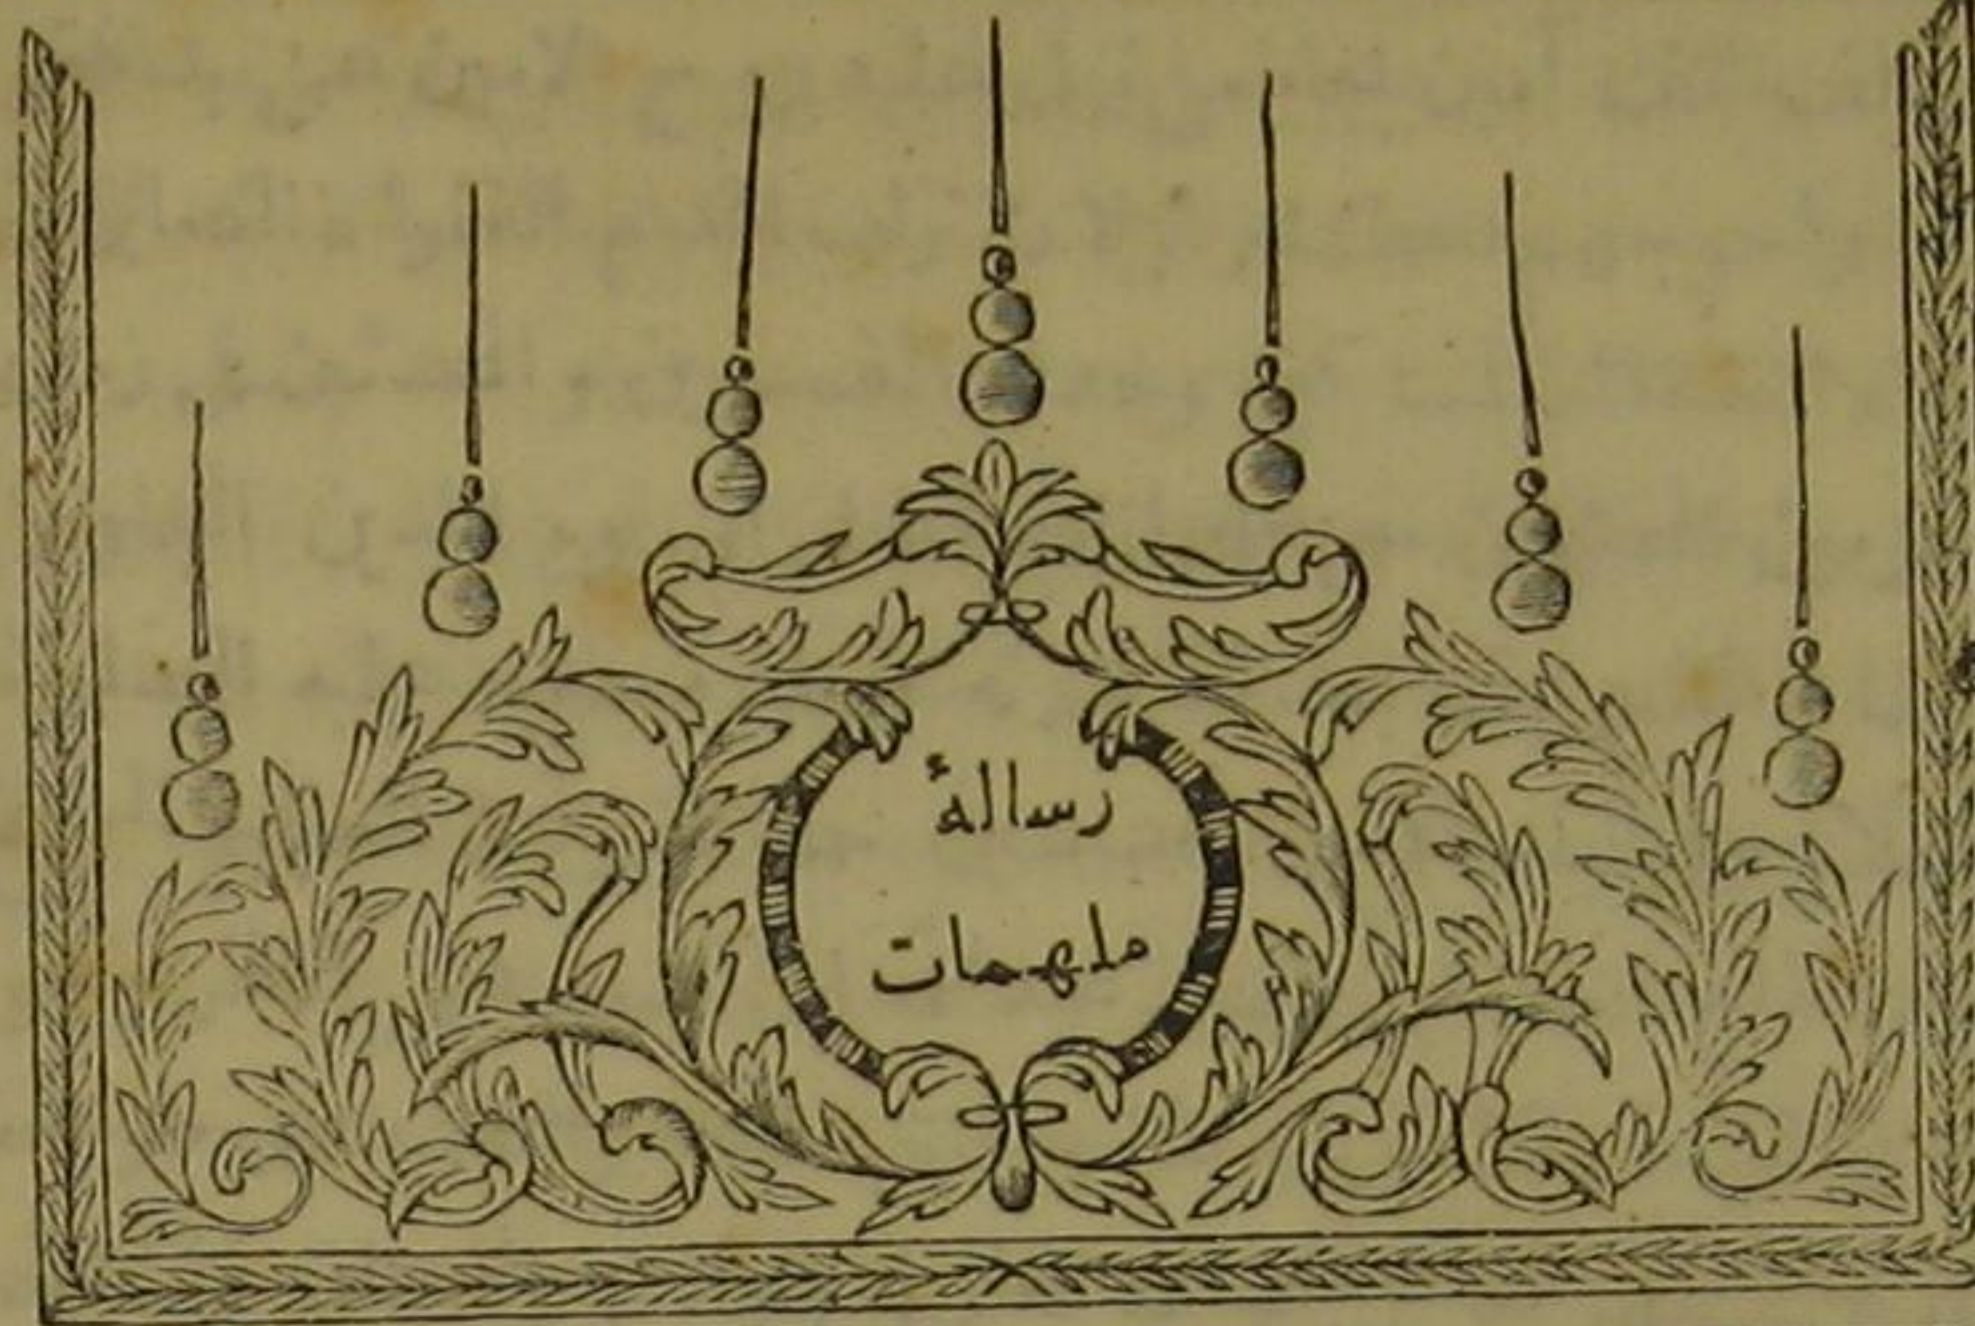 رسالهٔ
ملهمات